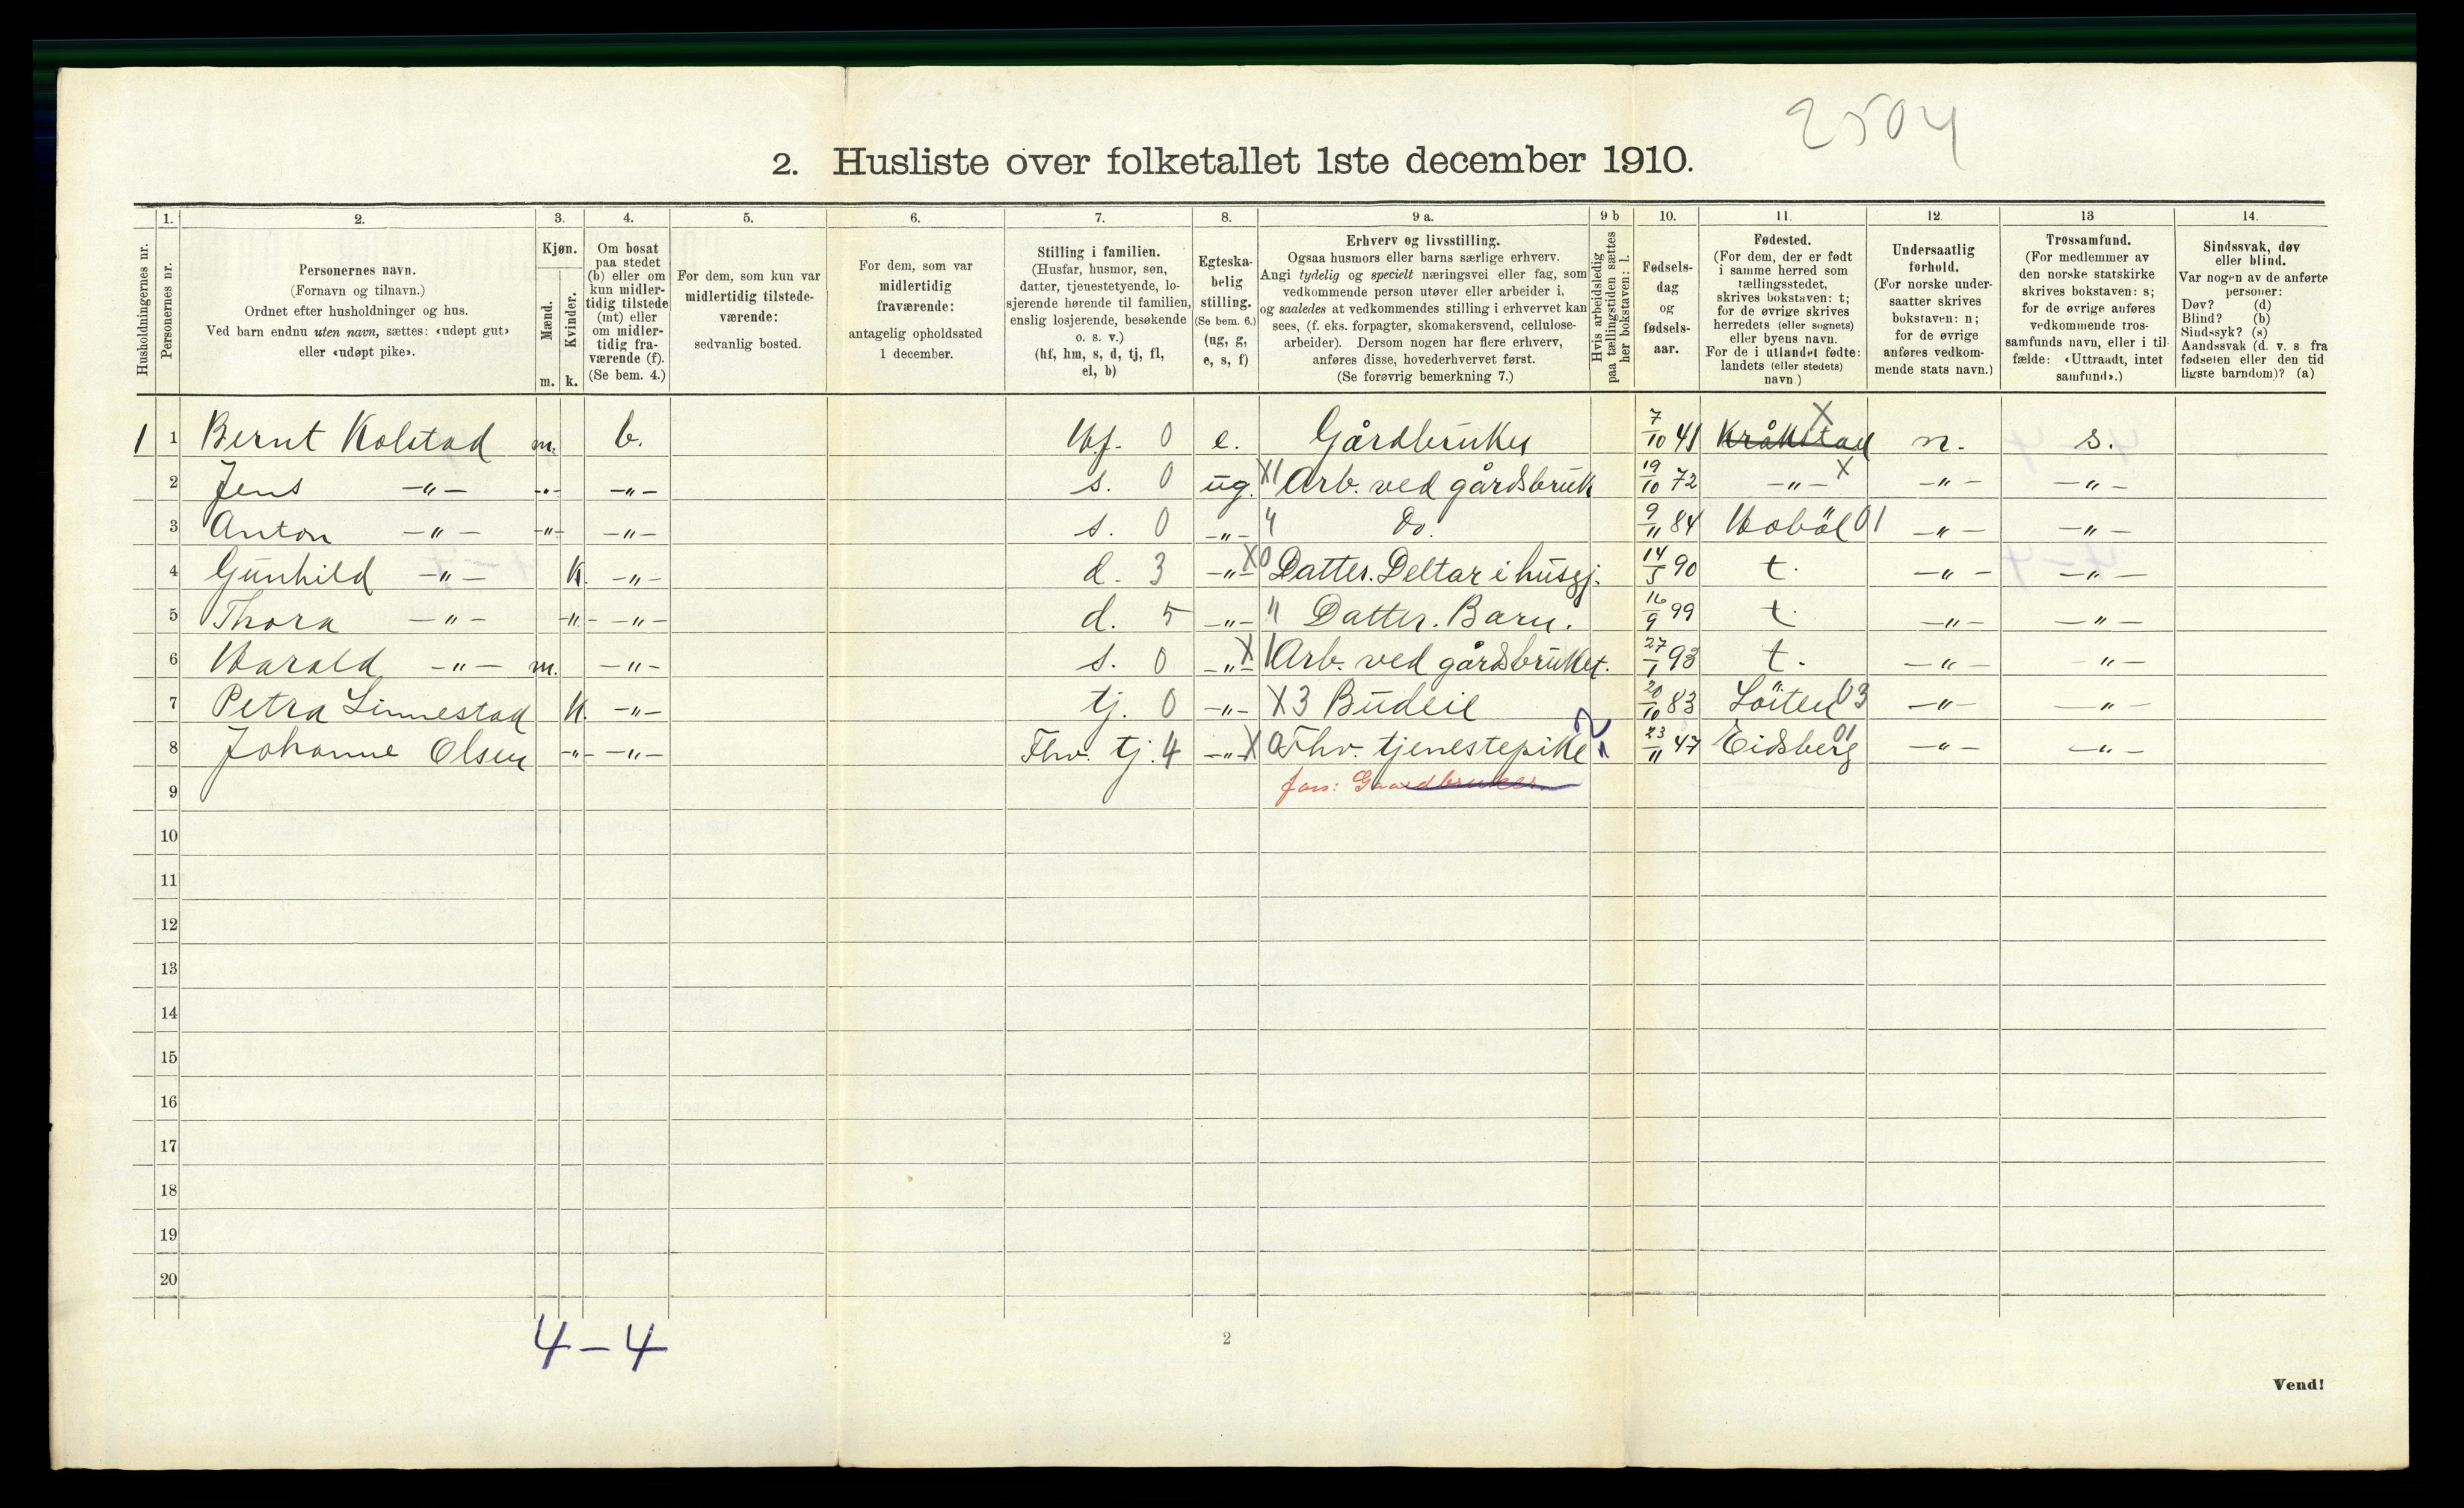 2504
2. Husliste over folketallet 1ste december 1910.
Husholdningernes nr.
1.
Personernes nr.
2.
Personernes navn.
(Fornavn og tilnavn.)
Ordnet efter husholdninger og hus.
Ved barn endnu uten navn, sættes: «udøpt gut»
eller «udøpt pike».
3.
Kjøn.
Mænd.
m.
Kvinder.
k.
4.
Om bosat
paa stedet
(b) eller om
kun midler-
tidig tilstede
(mt) eller
om midler-
tidig fra-
værende (f).
(Se bem. 4.)
5.
For dem, som kun var
midlertidig tilstede-
værende:
sedvanlig bosted.
6.
For dem, som var
midlertidig
fraværende:
antagelig opholdssted
1 december.
7.
Stilling i familien.
(Husfar, husmor, søn,
datter, tjenestetyende, lo-
sjerende hørende til familien,
enslig losjerende, besøkende
o. s. v.)
(hf, hm, s, d, tj, fl,
el, b)
8.
Egteska-
belig
stilling.
(Se bem. 6.)
(ug, g,
e, s, f)
9 a.
Erhverv og livsstilling.
Ogsaa husmors eller barns særlige erhverv.
Angi tydelig og specielt næringsvei eller fag, som
vedkommende person utøver eller arbeider i,
og saaledes at vedkommendes stilling i erhvervet kan
sees, (f. eks. forpagter, skomakersvend, cellulose-
arbeider). Dersom nogen har flere erhverv,
anføres disse, hovederhvervet først.
(Se forøvrig bemerkning 7.)
9 b
Hvis arbeidsledig
paa tællingstiden sættes
her bokstaven: l.
10.
Fødsels-
dag
og
fødsels-
aar.
11.
Fødested.
(For dem, der er født
i samme herred som
tællingsstedet,
skrives bokstaven: t;
for de øvrige skrives
herredets (eller sognets)
eller byens navn.
For de i utlandet fødte:
landets (eller stedets)
navn.)
12.
Undersaatlig
forhold.
(For norske under-
saatter skrives
bokstaven: n;
for de øvrige
anføres vedkom-
mende stats navn.)
13
Trossamfund.
(For medlemmer av
den norske statskirke
skrives bokstaven: s;
for de øvrige anføres
vedkommende tros-
samfunds navn, eller i til-
fælde: «Uttraadt, intet
samfund».)
14.
Sindssvak, døv
eller blind.
Var nogen av de anførte
personer:
Døv? (d)
Blind? (b)
Sindssyk? (s)
Aandssvak (d. v. s. fra
fødselen eller den tid-
ligste barndom)? (a)
1 1 Bernt Kolstad m. b. Hf. 0 e. Gårdbruker 7/10 41 Kråkstad X n. s.
2 Jens -"- -"- -"- s. 0 ug. X1 Arb. ved gårdsbruk 19/10 72 -"- X -"- -"-
3 Anton -"- -"- -"- s. 0 -"- " Do. 9/11 84 Hobøl 01 -"- -"-
4 Gunhild -"- K. -"- d. 3 -"- X0 Datter. Deltar i husgj. 14/5 90 t. -"- -"-
5 Thora -"- -"- -"- d. 5 -"- " Datter. Barn. 16/9 99 t. -"- -"-
6 Harald -"- m. -"- s. 0 -"- X1 Arb. ved gårdsbruket. 27/1 93 t. -"- -"-
7 Petra Linnestad K. -"- tj. 0 -"- X3 Budeie 20/10 83 Löiten 03 -"- -"-
8 Johanne Olsen -"- -"- Fhv. tj. 4 -"- X0 Fhv. tjenestepike 23/11 47 Eidsberg 01 -"- -"-
9 fors: Gaardbruker
10
11
12
13
14
15
16
17
18
19
20
4-4
2
Vend!